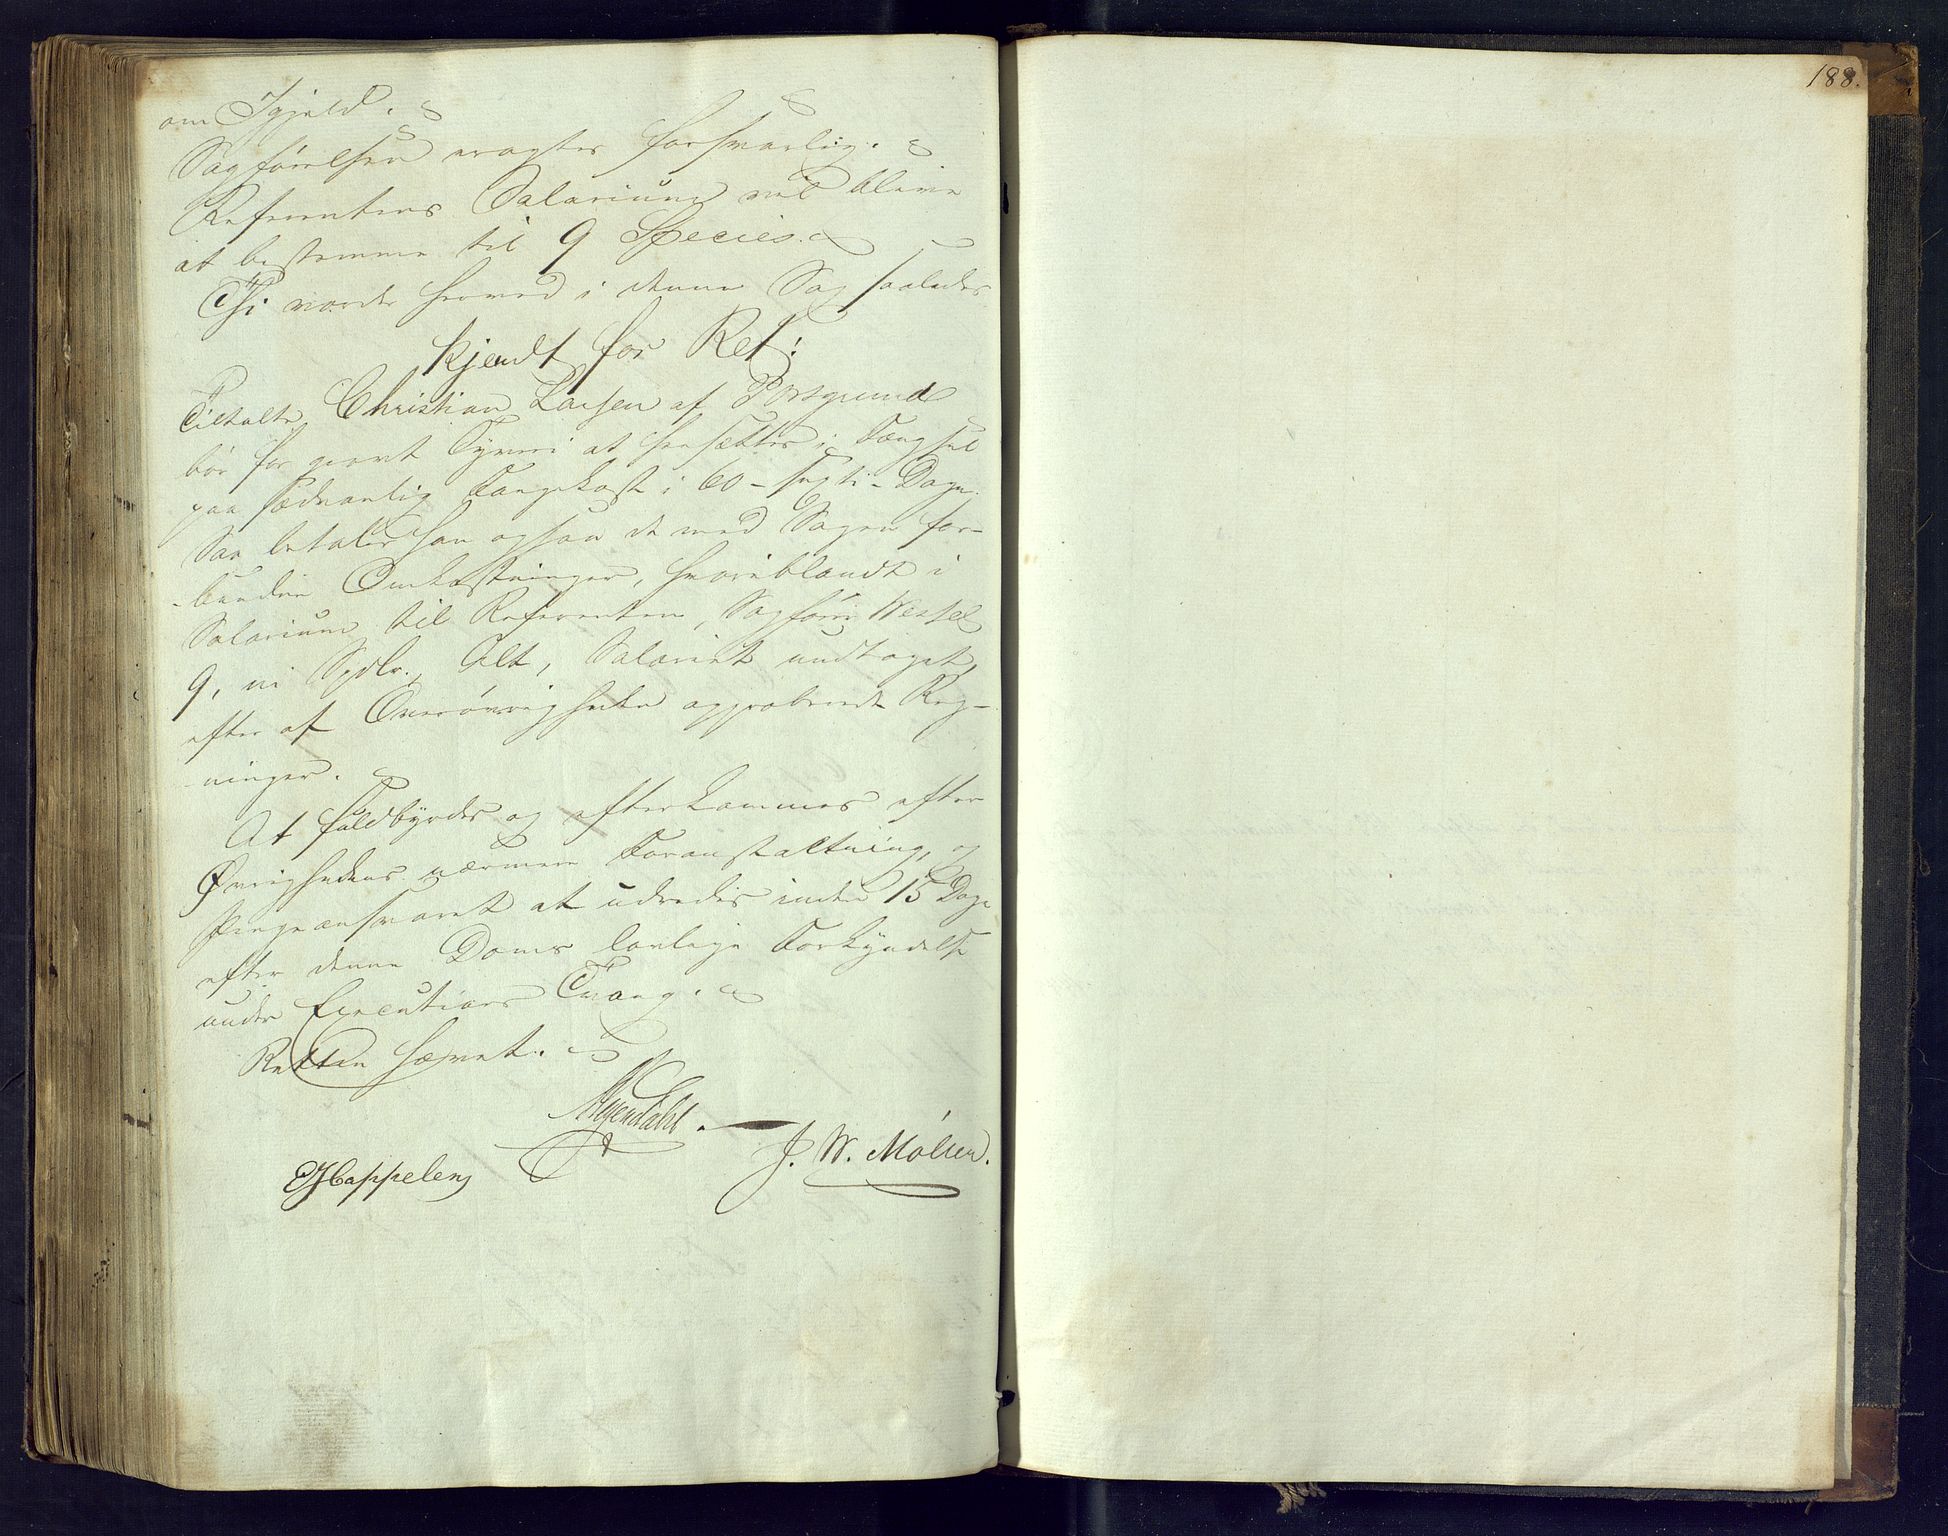 om Igjeld.
Sagførelsen eragtes forsvarlig.
Referentens Salarium vil blive
at bestemme til 9 Species.
Thi vorder herved i denne Sag saaledes
kjendt for Ret:
Tiltalte Christian Larsen af Porsgrund
bør for giort Tyveri at hensættes i Fængsel
paa sædvanlig Fangekost i 60 - sexti - Dage.
Saa betaler han ogsaa de med Sagen for-
-bundne Omkostninger, hvoriblandt i
Salarium til Referenten, Sagfører Wessel
9, ni Spdlr., Alt, Salariet undtaget,
efter af Overøvrigheden approberede Reg-
-ninger.
At fuldbyrdes og efterkommes efter
Øvrighedens nærmere Foranstaltning, og
Pengeansvaret at udredes inden 15 Dage
efter denne Doms lovlige Forkyndelse
under Executions Tvang.
Retten hævet.
J. W. Møller.
Cappelen
188.